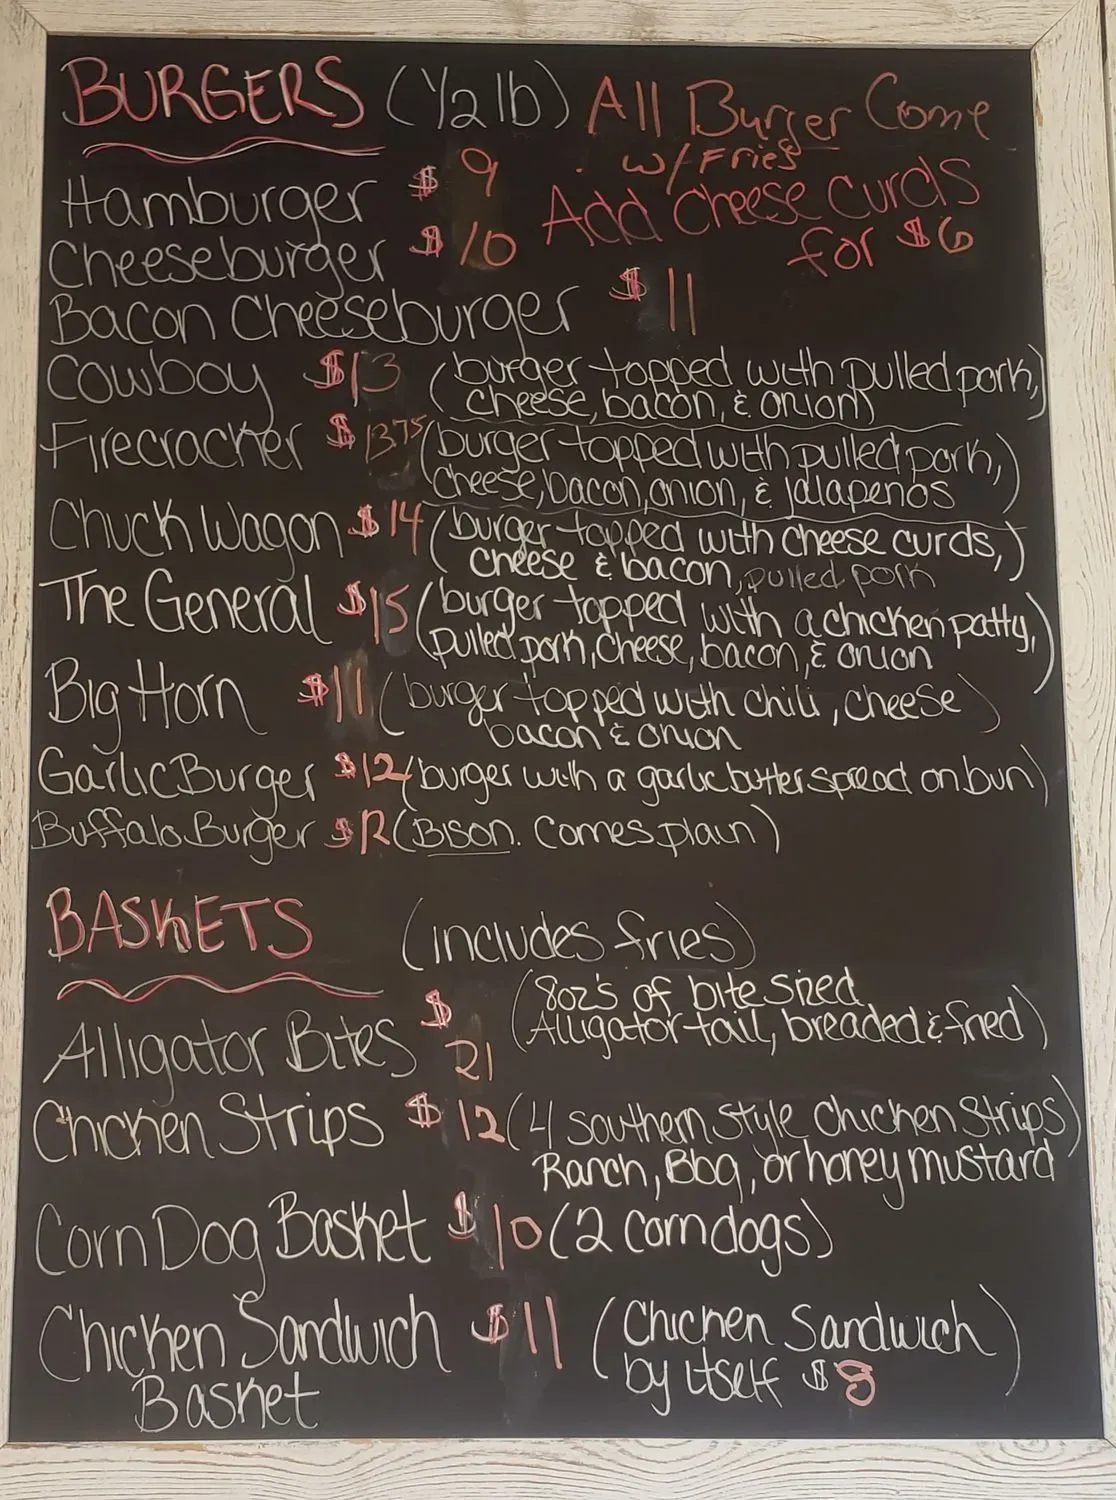 BURGERS (1/2 lb) All Burger Come
w/ Fries
Hamburger $9
Add Cheese Curds
for $6
Cheeseburger $10
Bacon Cheeseburger $11
Cowboy $13 (burger topped with pulled pork,
cheese, bacon, & onion)
Firecracher $1375 (burger topped with pulled pork,
cheese, bacon, onion, & jalapenos)
Chuck Wagon $14 (burger topped with cheese curds,
cheese & bacon, pulled pork)
The General $15 (burger topped with a chicken patty,
pulled pork, cheese, bacon, & onion)
Big Horn $11 (burger topped with chili, cheese
bacon & onion)
Garlic Burger $12 (burger with a garlic butter spread on bun)
Buffalo Burger $12 (Bison. Comes plain)
BASKETS (includes fries)
Alligator Bites $21 (8oz's of bite sized
Alligator tail, breaded & fried)
Chicken Strips $12 (4 Southern Style Chicken Strips)
Ranch, Bbq, or honey mustard
Corn Dog Basket $10 (2 corndogs)
Chicken Sandwich $11 (Chicken Sandwich
Basket by itself $8)